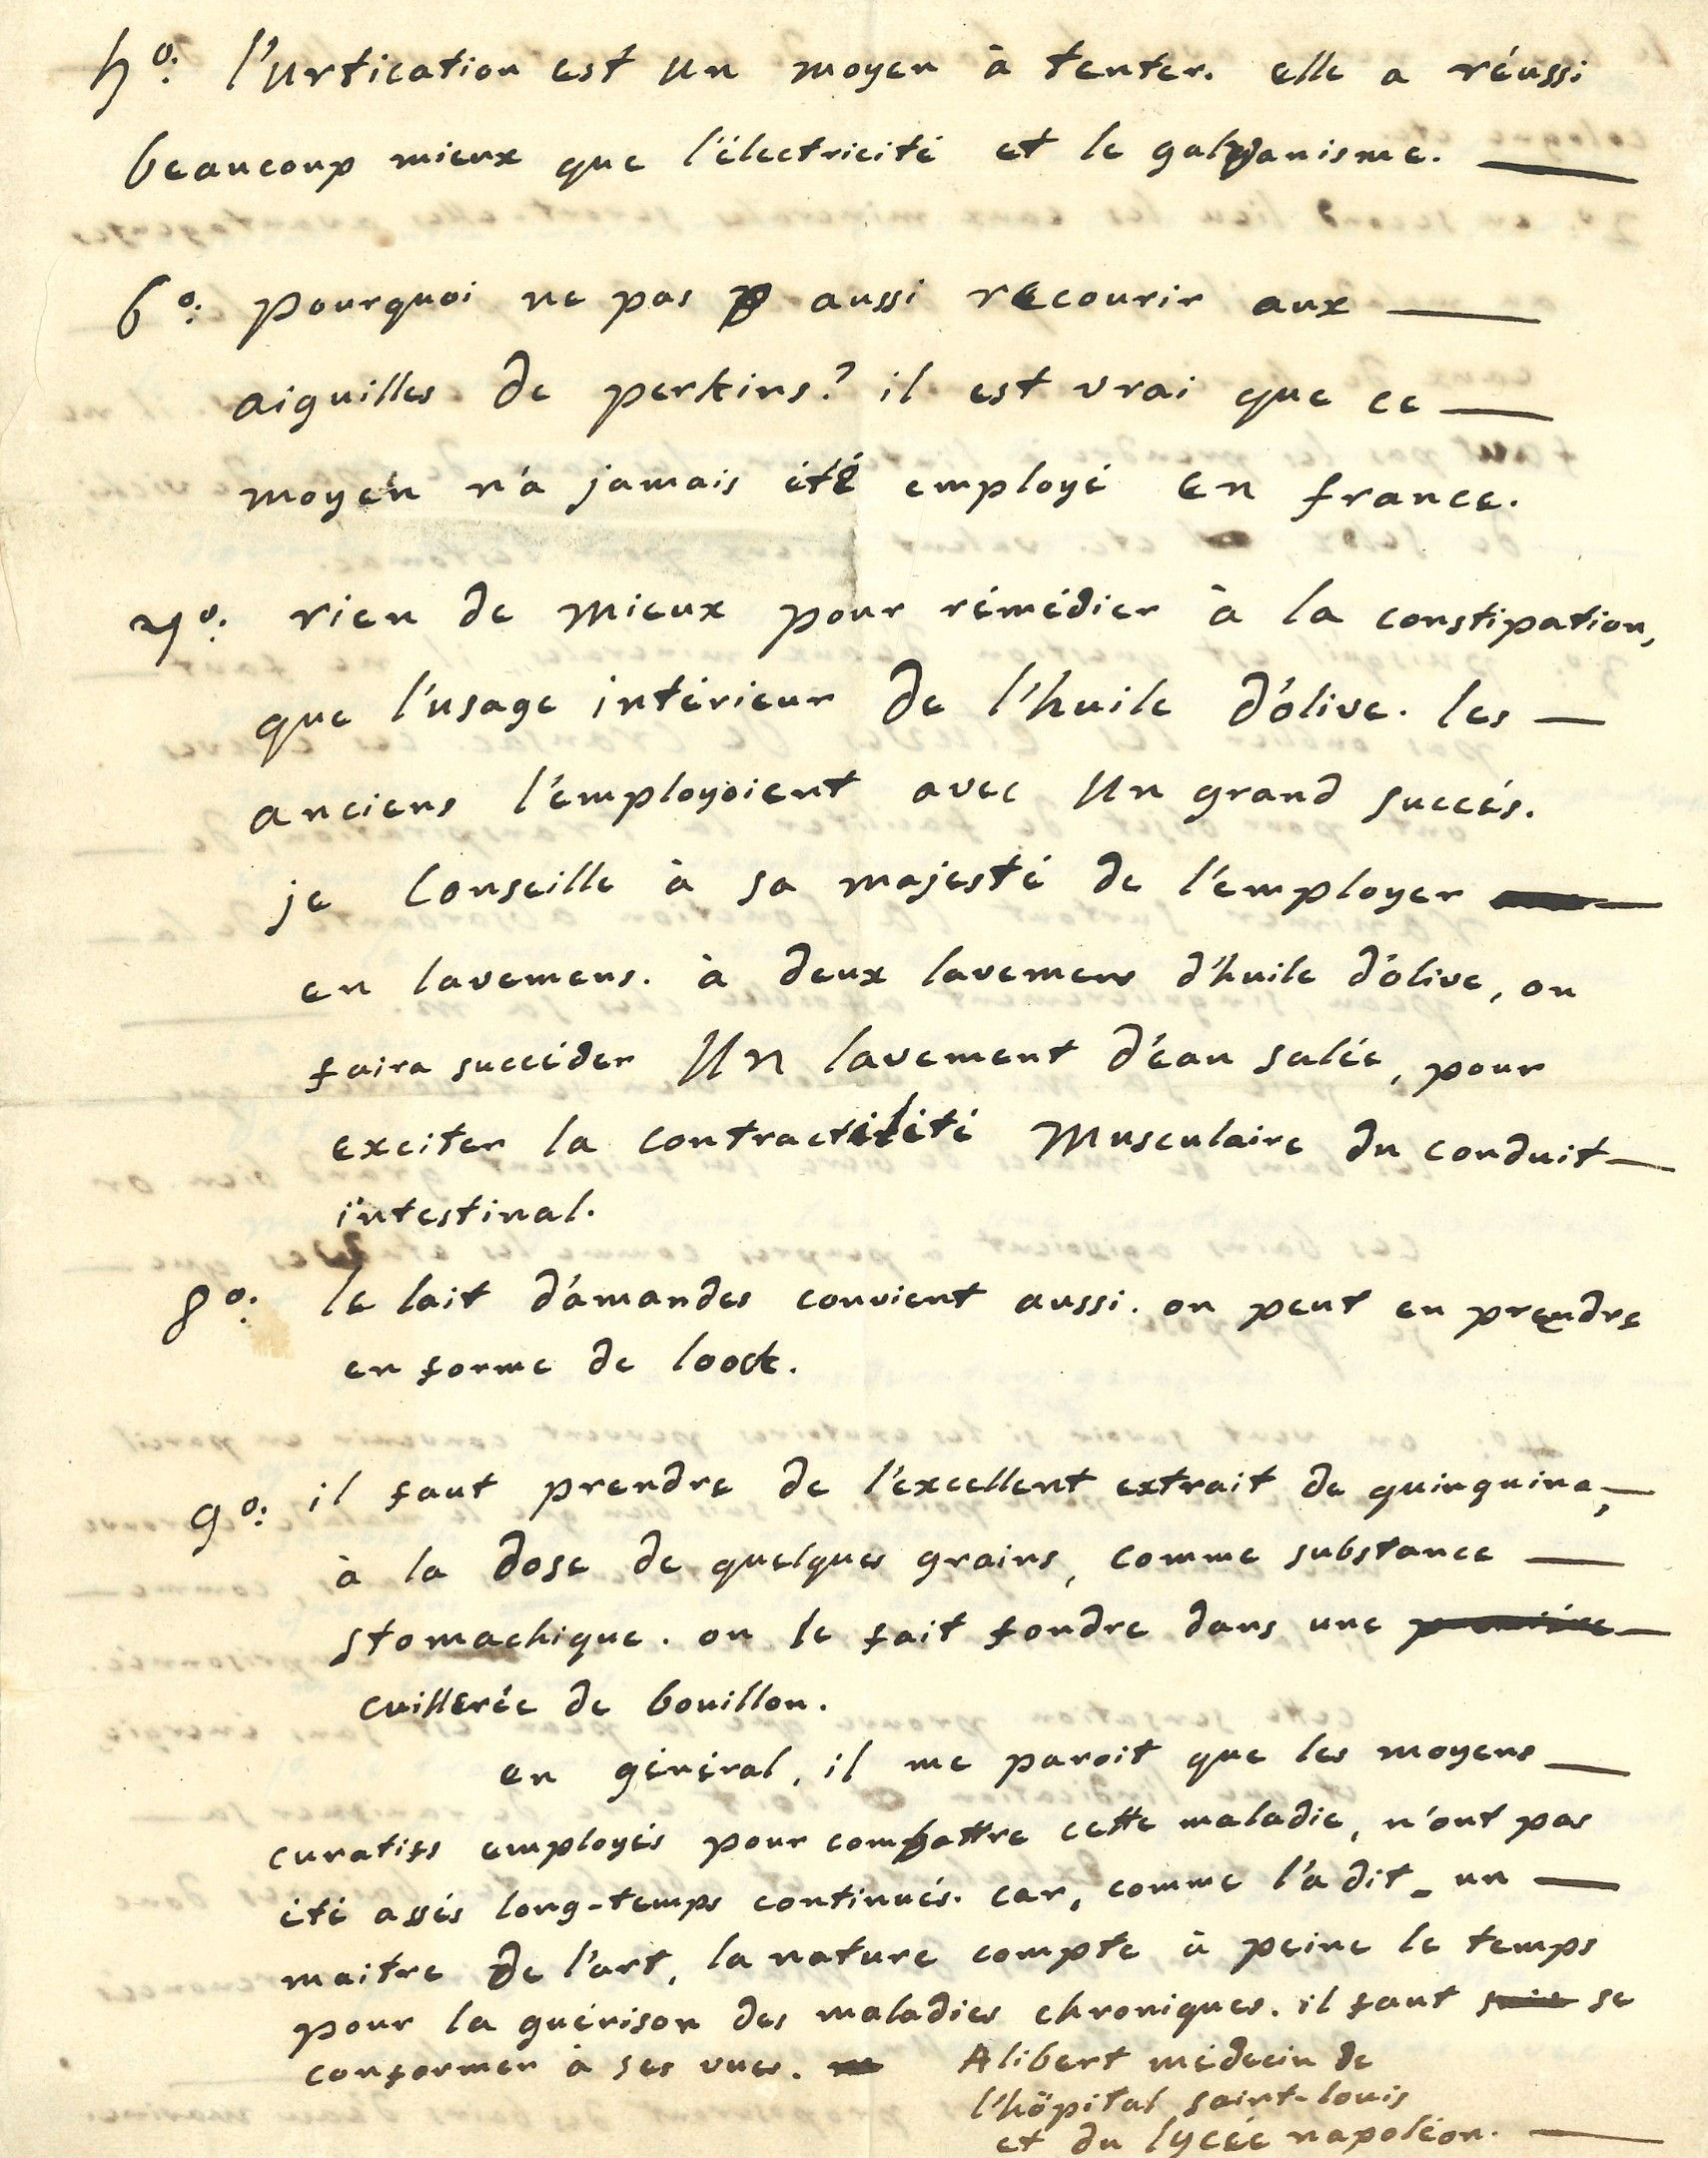 5º: l'urtication est un moyen à tenter. elle a réussi
beaucoup mieux que l'électricité et le galvanisme. —
6º: pourquoi ne pas aussi recourir aux —
aiguilles de perkins? il est vrai que ce —
moyen n'a jamais été employé en france.
7º: rien de mieux pour rémédier à la constipation,
que l'usage intérieur de l'huile d'olive. les —
anciens l'employoient avec un grand succés.
je conseille à sa majesté de l'employer —
en lavemens. à deux lavemens d'huile d'olive, on
faira succéder un lavement d'éau salée, pour
exciter la contractilité musculaire du conduit —
intestinal.
8º: le lait d'amandes convient aussi. on peut en prendre
en forme de loock.
9º: il faut prendre de l'excellent extrait de quinquina, —
à la dose de quelques grains, comme substance —
stomachique. on le fait fondre dans une —
cuillerée de bouillon.
en général, il me paroit que les moyens —
curatifs employés pour combattre cette maladie, n'ont pas
été assés long-temps continués. car, comme l'a dit un —
maitre de l'art, la nature compte à peine le temps
pour la guérison des maladies chroniques. il faut se
conformer à ses vues. Alibert médecin de
l'hôpital saint-louis
et du lycée napoléon. —